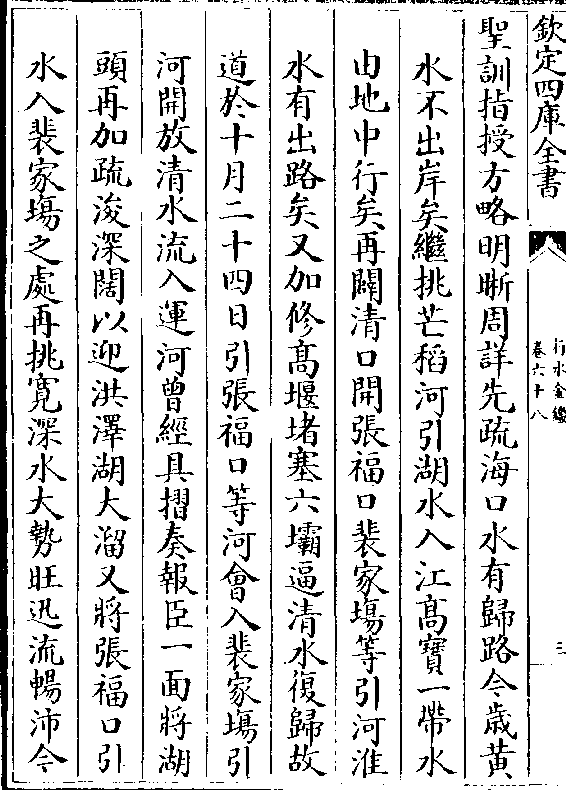 欽定四庫全書
行水金鑑
卷六十八
三
聖訓指授方略明晰周詳先疏海口水有歸路今歳黄
水不出岸矣繼挑芒稻河引湖水入江髙寶一帶水
由地中行矣再闢清口開張福口裴家塲等引河淮
水有出路矣又加修髙堰堵塞六壩逼清水復歸故
道於十月二十四日引張福口等河會入裴家塲引
河開放清水流入運河曾經具摺奏報臣一面將湖
頭再加疏浚深闊以迎洪澤湖大溜又將張福口引
水入裴家塲之處再挑寛深水大勢旺迅流暢沛今